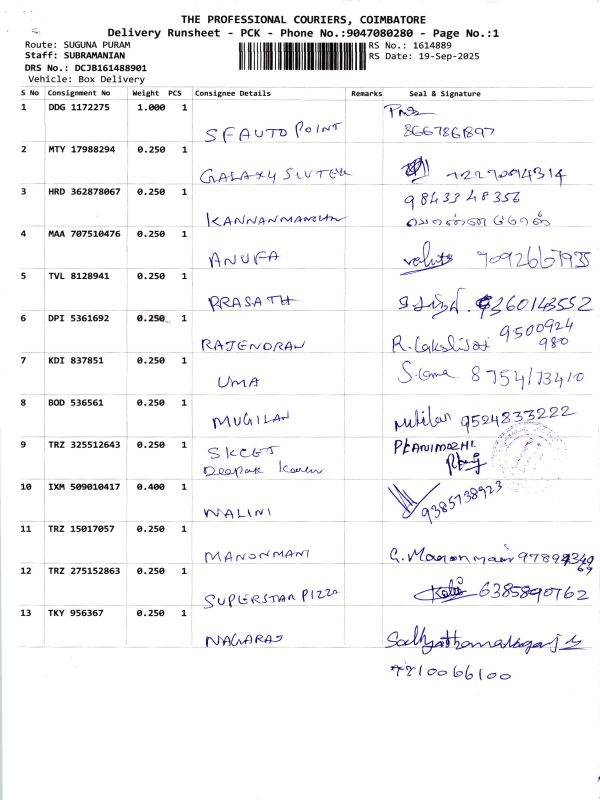 THE PROFESSIONAL COURIERS, COIMBATORE
Delivery Runsheet - PCK - Phone No.:9047080280 - Page No.:1
Route: SUGUNA PURAM
RS No.: 1614889
Staff: SUBRAMANIAN
RS Date: 19-Sep-2025
DRS No.: DCJB161488901
Vehicle: Box Delivery
S No Consignment No Weight PCS Consignee Details Remarks Seal & Signature
1 DDG 1172275 1.000 1
SFAUTO POINT 8667861897
2 MTY 17988294 0.250 1
GALAXY
3 HRD 362878067 0.250 1 9843348356
4 MAA 707510476 0.250 1
ANUFA 7092667935
5 TVL 8128941 0.250 1
PRASATH 9360143552
6 DPI 5361692 0.250 1 9500924
RAJENDRAN R. 980
7 KDI 837851 0.250 1
UMA 8754173410
8 BOD 536561 0.250 1
MUGILAN 9524833222
9 TRZ 325512643 0.250 1
SKCET
Deepak
10 IXM 509010417 0.400 1 9385738923
NALINI
11 TRZ 15017057 0.250 1
MANONMANI G. Manonmani
12 TRZ 275152863 0.250 1
SUPERSTAR PIZZA 6385890762
13 TKY 956367 0.250 1
NAGARAJ